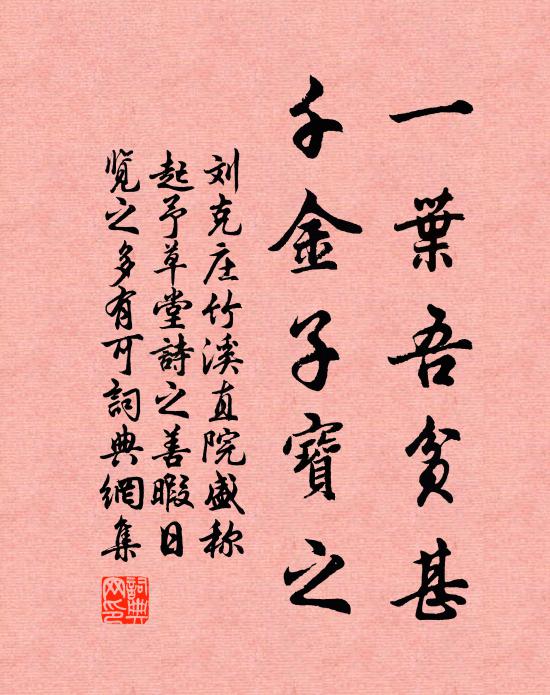 一葉吾貧甚
千金子寶之
刘克庄竹溪直院盛称
起予草堂詩之善暇日
览之多有可詞典網集
詞典
网印